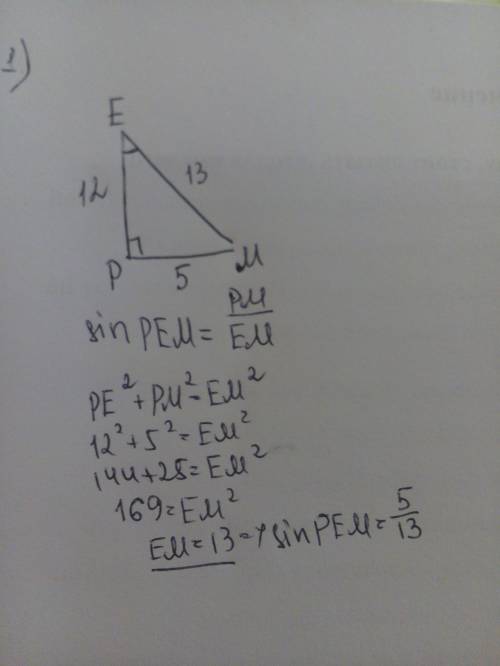 1)
E
12
13
P
5
M
sin PEM = PM/EM
PE² + PM² = EM²
12² + 5² = EM²
144 + 25 = EM²
169 = EM²
EM = 13 => sin PEM = 5/13